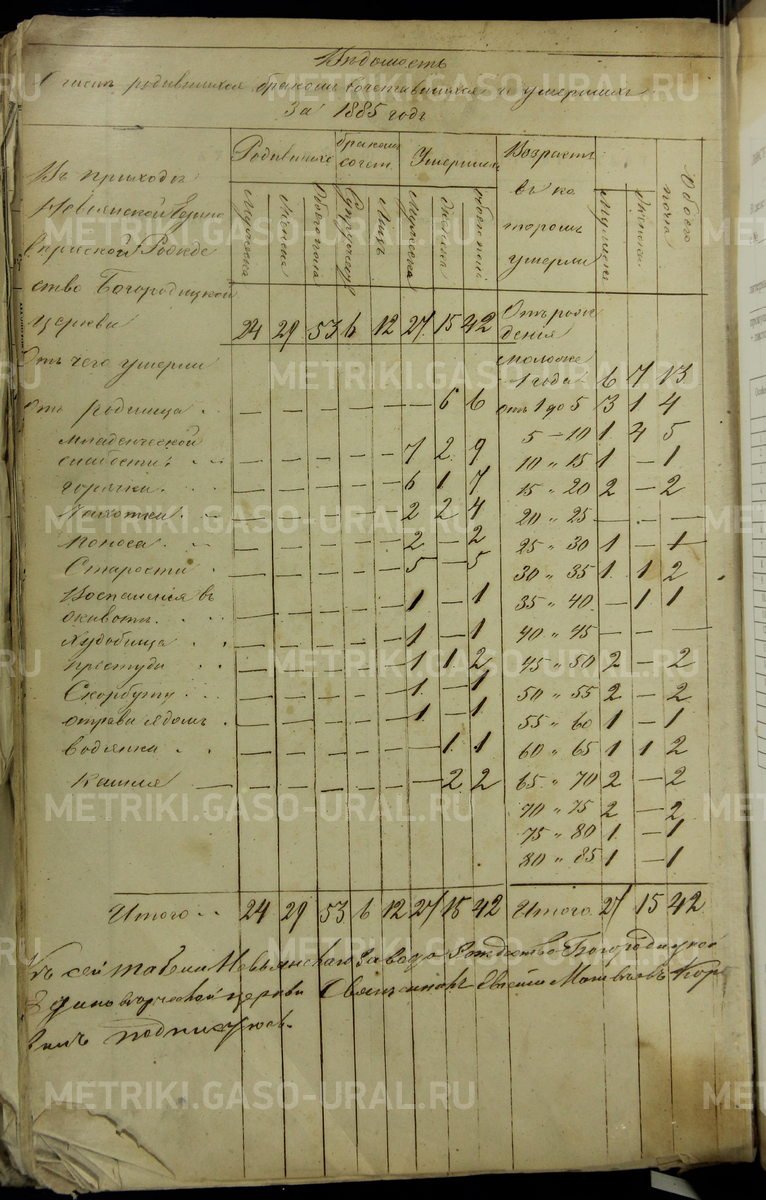 Ведомость
О числѣ родившихся бракомъ сочетавшихся и умершихъ
За 1885 годъ
Въ приходѣ
Невьянской Едино
вѣрческой Рожде
ство Богородицкой
церкви
Родившихся бракомъ сочет. Умершихъ Возрастъ въ ко тором умерли Обоего пола
Мужеска Женска Обоего пола Супружеств Лицъ Мужеска Женска Обоего пола Мужеска Женска
24 29 53 6 12 27 15 42 Отъ рож
дения
Отъ чего умерли моложе
1 года 6 7 13
Отъ родимца — — — — — — 6 6 отъ 1 до 5 3 1 4
младенческой 5 — 10 1 4 5
слабости — — — — — 7 2 9 10 " 15 1 — 1
горячки — — — — — 6 1 7 15 " 20 2 — 2
Чахотки — — — — — 2 2 4 20 " 25 — — —
Поноса — — — — — 2 — 2 25 " 30 1 — 1
Старости — — — — — 5 — 5 30 " 35 1 1 2
Воспаления въ 35 " 40 — 1 1
животѣ — — — — — 1 — 1
Худобища — — — — — 1 — 1 40 " 45 — — —
простуда — — — — — 1 1 2 45 " 50 2 — 2
Скорбуту — — — — — 1 — 1 50 " 55 2 — 2
отрава ядомъ — — — — — 1 — 1 55 " 60 1 — 1
водянка — — — — — — 1 1 60 " 65 1 1 2
Кашля — — — — — — 2 2 65 " 70 2 — 2
70 " 75 2 — 2
75 " 80 1 — 1
80 " 85 1 — 1
Итого 24 29 53 6 12 27 15 42 Итого 27 15 42
Къ сей табели Невьянскаго завода Рождество Богородицкой
Единоверческой церкви Священникъ
подписуюсь.
METRIKI.GASO-URAL.RU